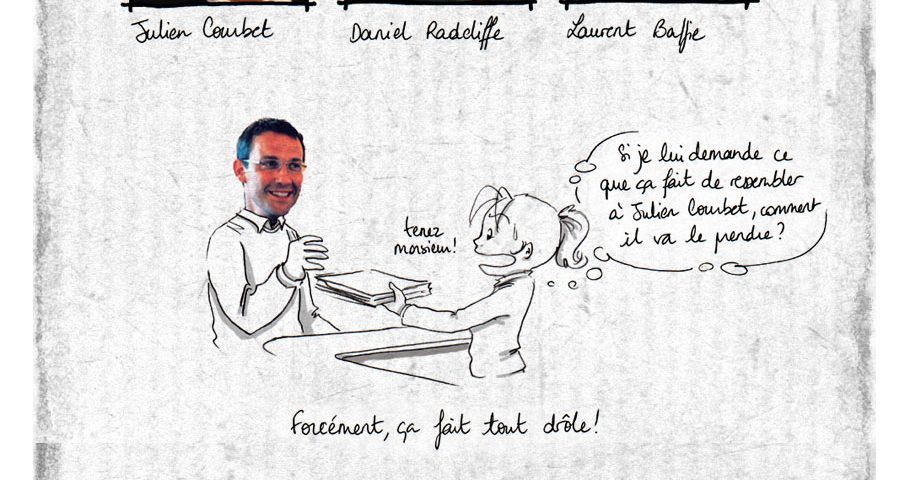 Julien Courbet
Daniel Radcliffe
Laurent Baffie
Si je lui demande ce
que ça fait de ressembler
à Julien Courbet, comment
il va le prendre?
tenez
monsieur!
Forcément, ça fait tout drôle!